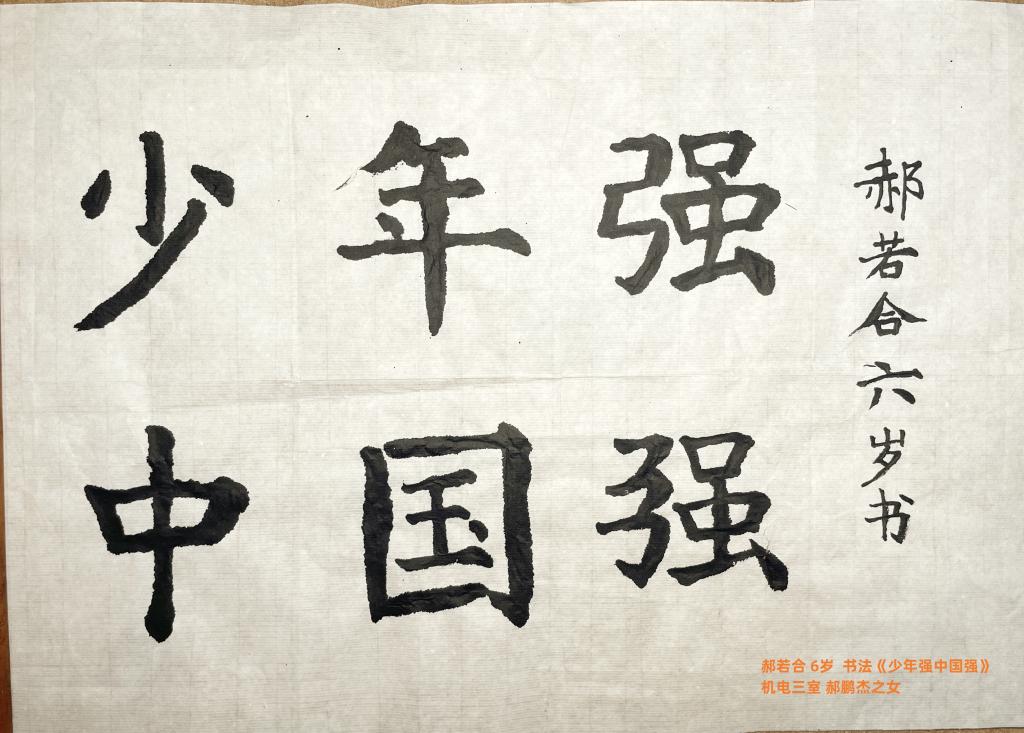 少年强
中国强
郝若合六岁书
郝若合 6岁 书法《少年强中国强》
机电三室 郝鹏杰之女